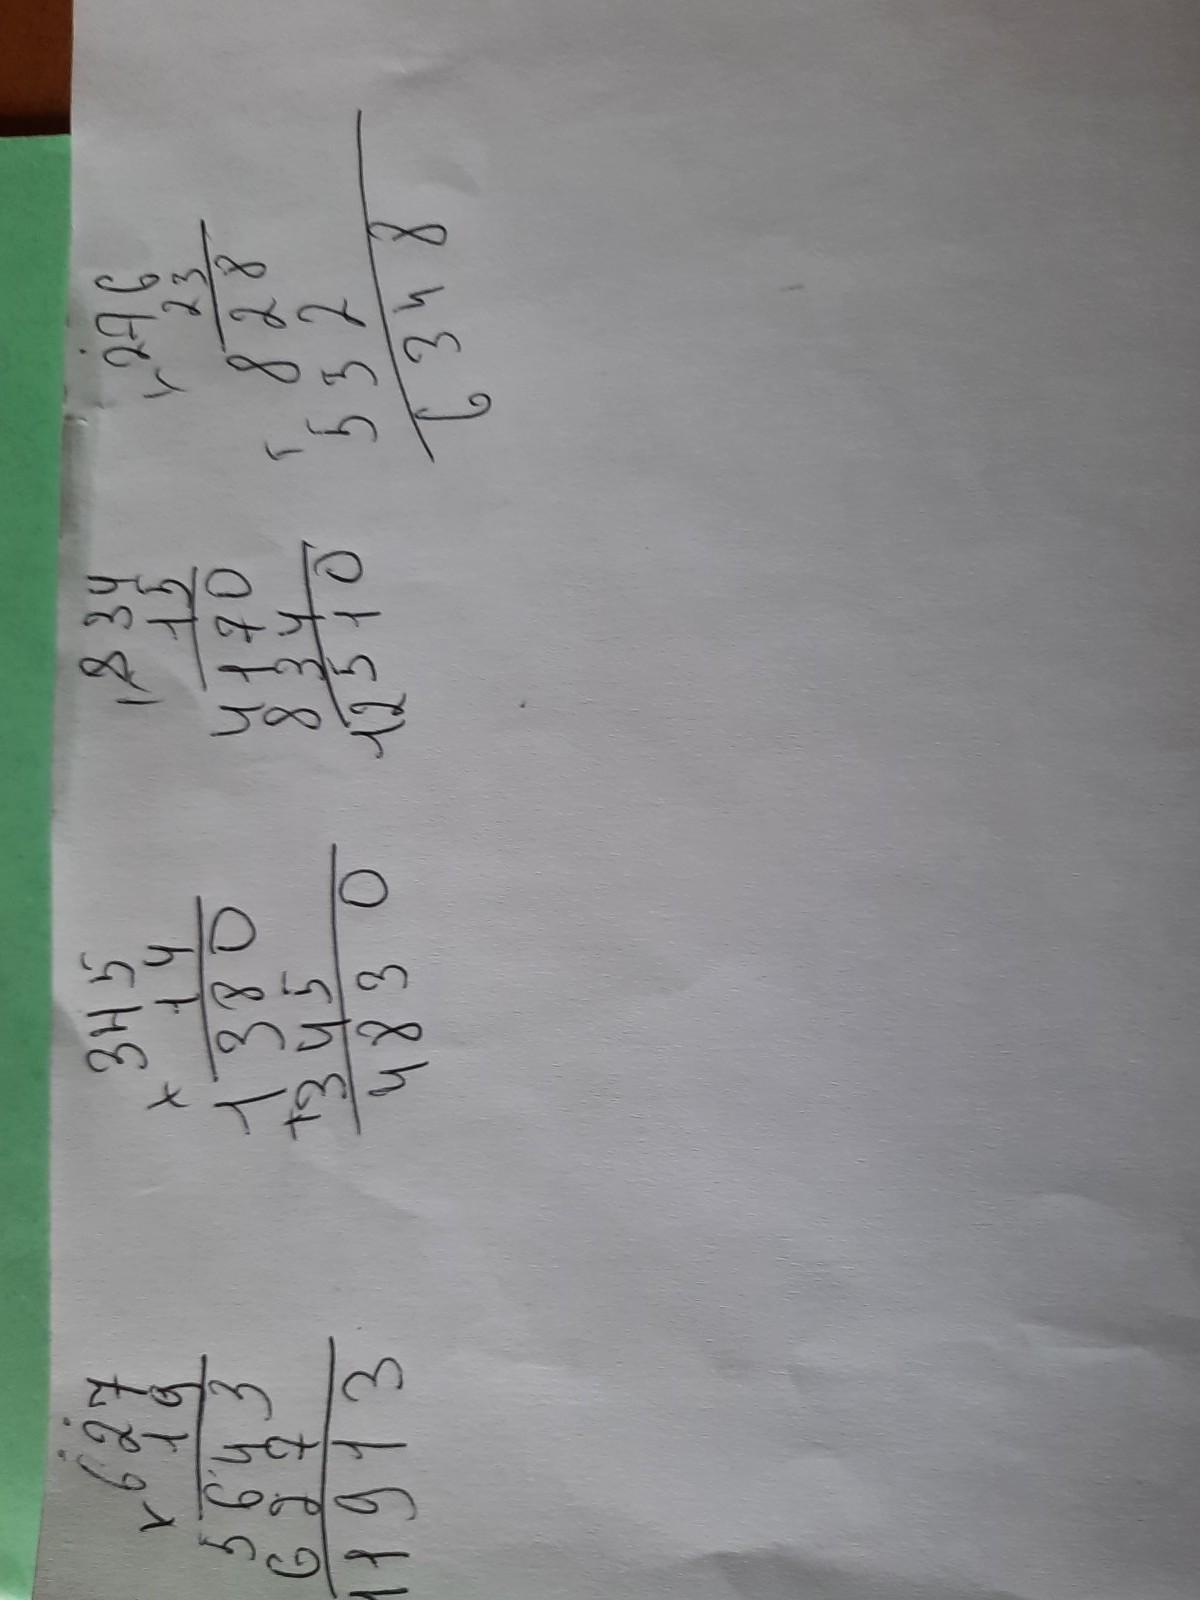 × 627
19
5643
627
11913
× 345
14
1380
+345
4830
× 834
15
4170
834
12510
× 276
23
828
532
6348